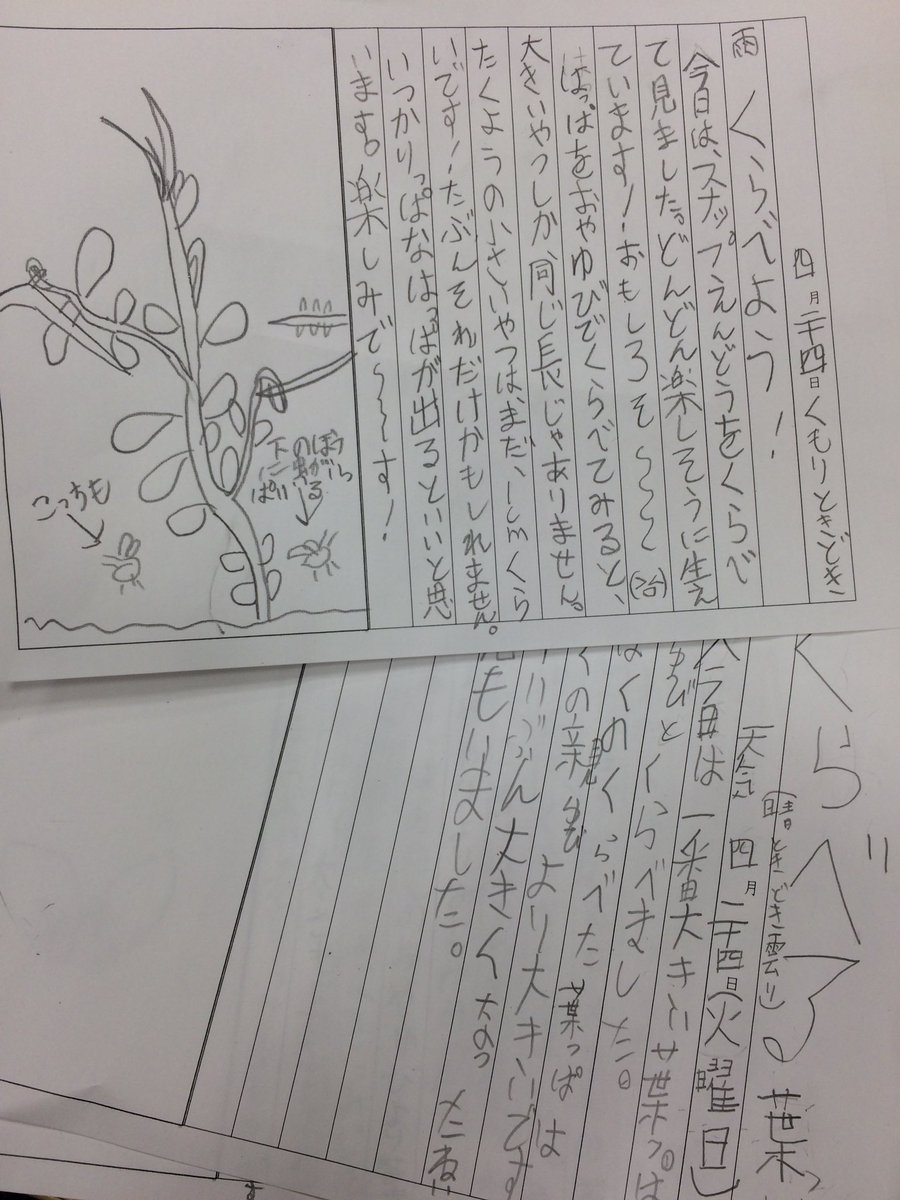 四月二十四日くもりときどき
雨 くらべよう!
今日は、スナップえんどうをくらべ
て見ました。どんどん楽しそうに生え
ています!おもしろそ〜〜〜
はっぱをおやゆびでくらべてみると、
大きいやつしか同じ長じゃありません。
たくようの小さいやつはまだ、1cmくら
いです!たぶんそれだけかもしれません。
いつかりっぱなはっぱが出るといいと思
います。楽しみで〜〜〜す!
ぼうし
の虫がいる
下に
っぱい
こっちも
くらべる。葉っ
(晴ときどき雲り)
天気 四月二十四日(火曜日)
今日は一番大きい葉っぱ
ゆびとくらべました。
ぼくのくらべた葉っぱは
くの親ゆびより大きいです
ずいぶん大きくなったねい
もりました。